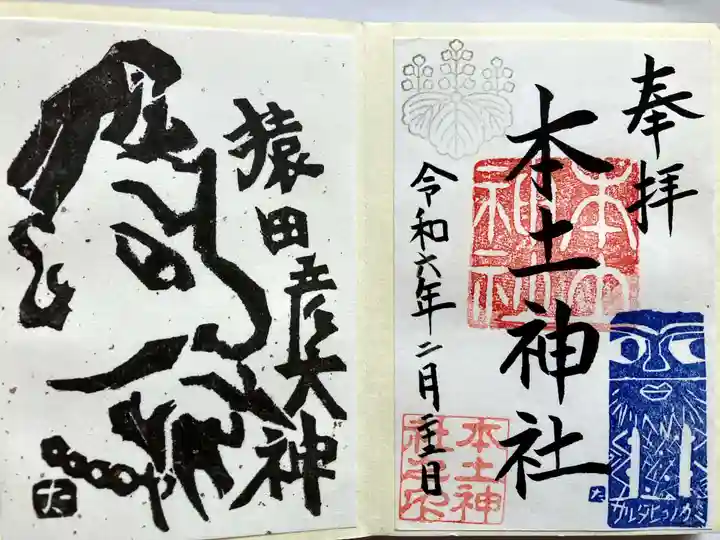 奉拝
本土神社
本土神社
令和六年二月
本土神社之印
サルタヒコノカミ
大
猿田彦大神
大